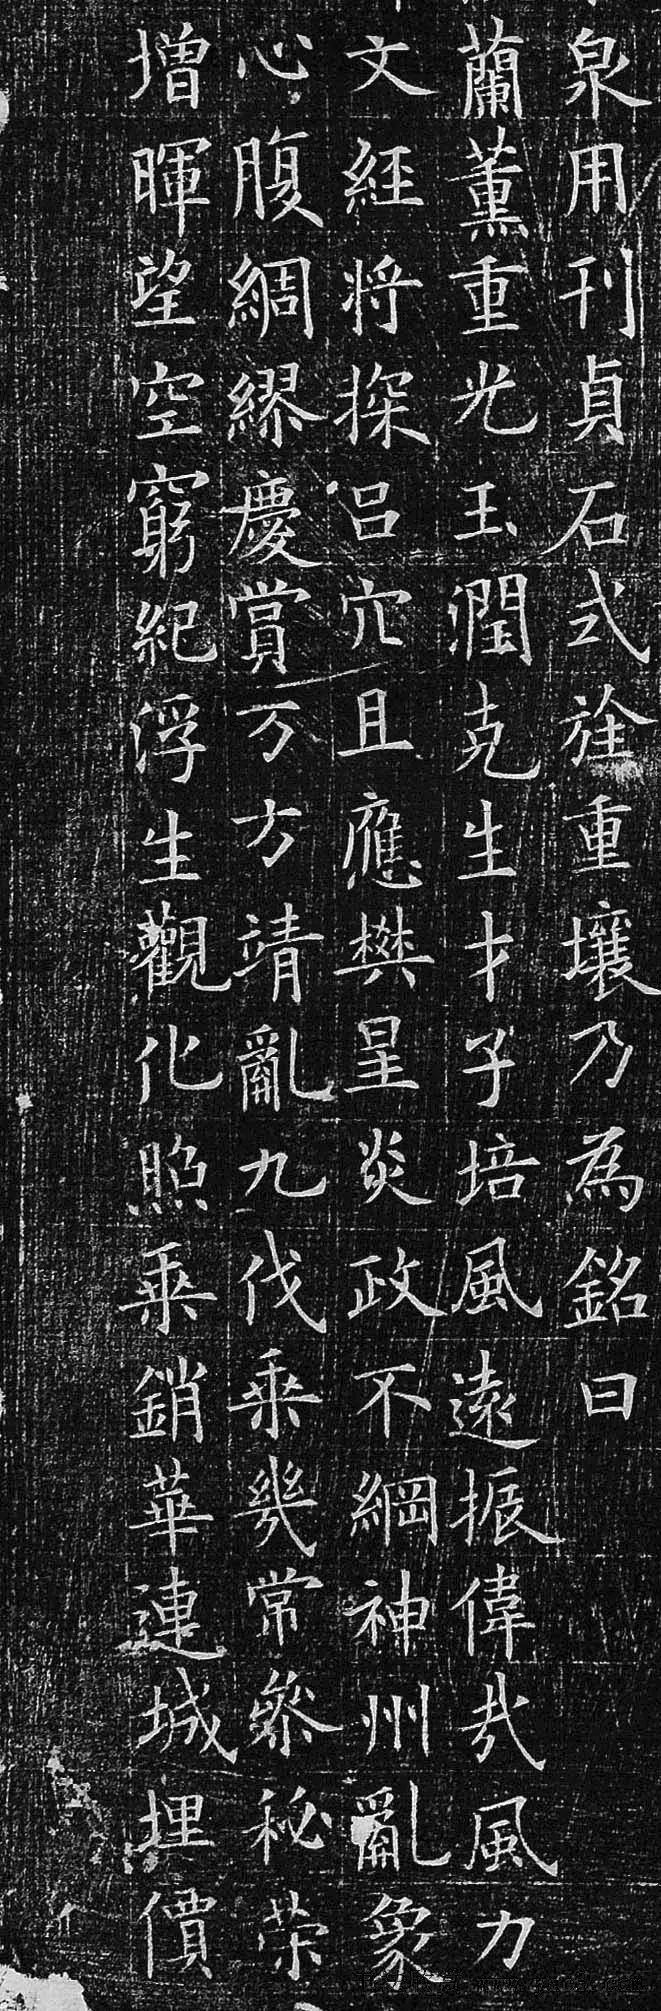 泉用刊貞石式旌重壤乃為銘曰
蘭薰重光玉潤克生才子培風遠振偉哉風力
文經將探呂穴且應樊星炎政不綱神州亂象
心腹綢繆慶賞万方靖亂九伐乘幾常參秘荣
增暉望空窮紀浮生觀化照乘銷華連城埋價